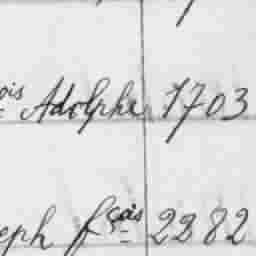 ois Adolphe 1703
eph fçois 2282